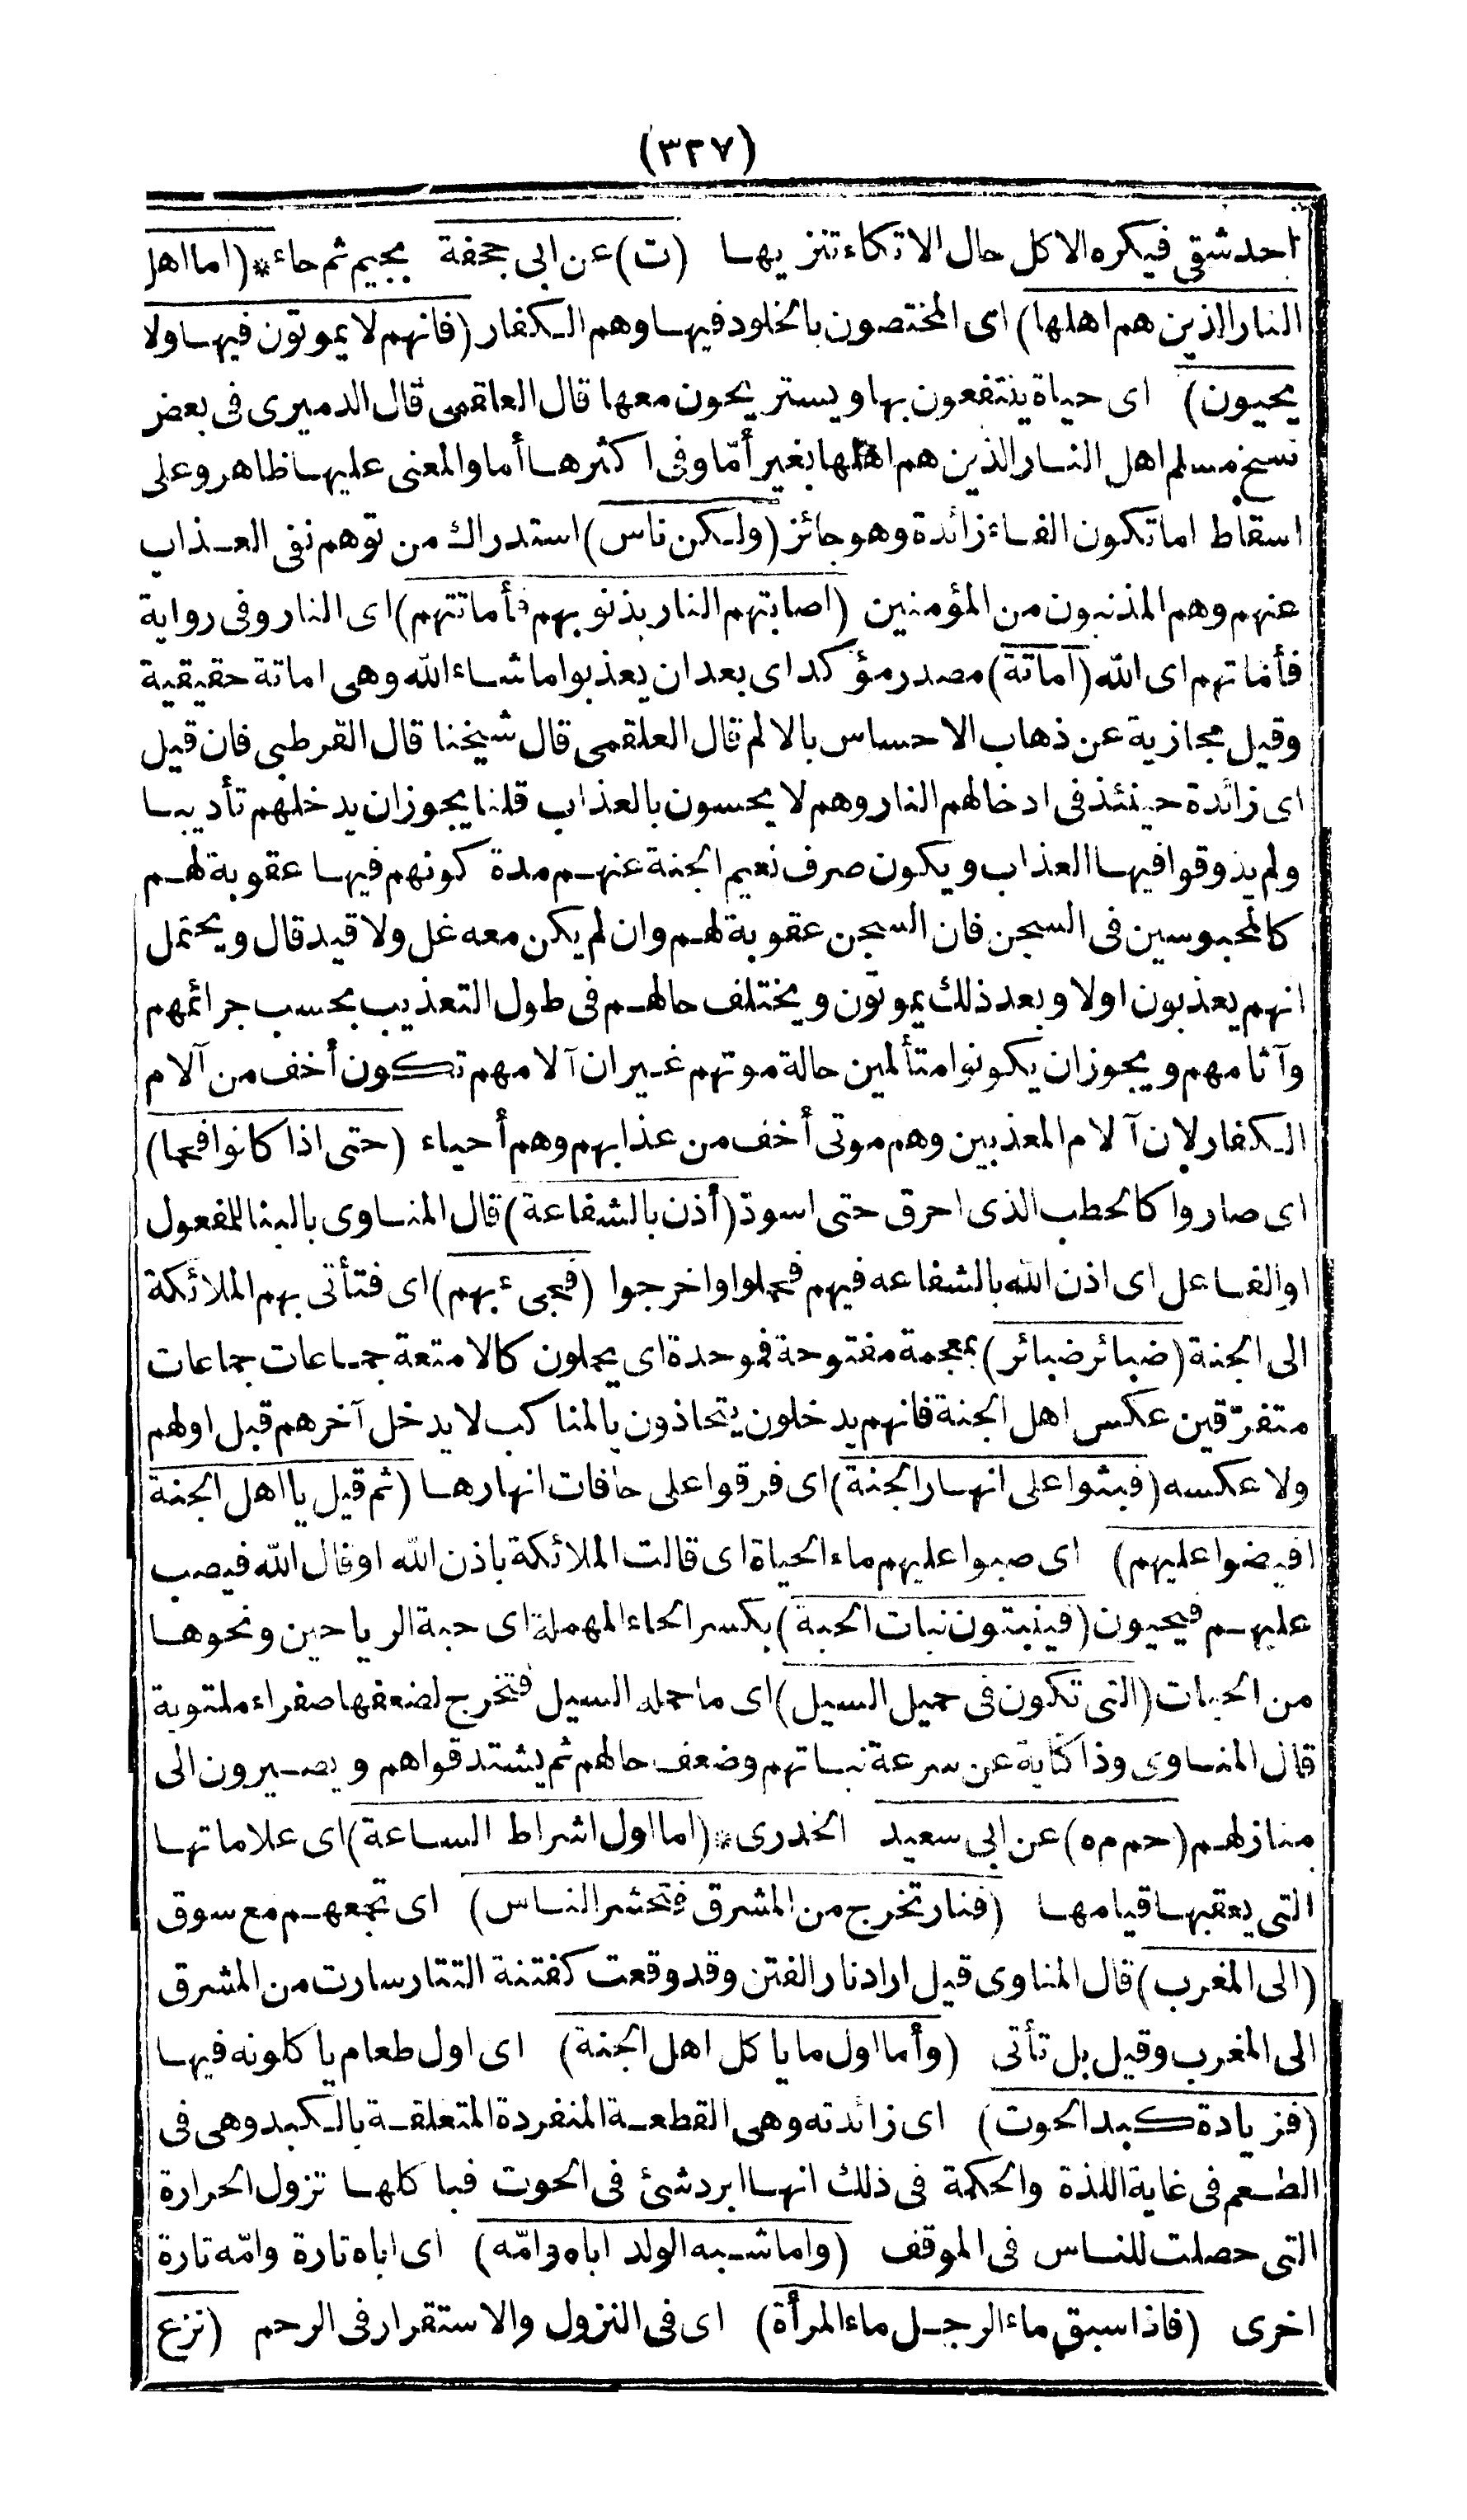 (٣٢٧)
احد شقي فيكره الاكل حال الاتكاء تنزيها (ت) عن ابي جحفة بجيم ثم حاء * (اما اهل
النار الذين هم اهلها) اى المختصون بالخلود فيها وهم الكفار (فانهم لا يموتون فيها ولا
يحيون) اى حياة ينتفعون بها ويستريحون معها قال العلقمى قال الدميرى فى بعض
نسخ مسلم اهل النار الذين هم اهلها بغير أمّا وفى اكثرها أما والمعنى عليها ظاهر وعلى
اسقاط اما تكون الفاء زائدة وهو جائز (ولكن ناس) استدراك من توهم نفى العذاب
عنهم وهم المذنبون من المؤمنين (اصابتهم النار بذنوبهم فأماتتهم) اى النار وفى رواية
فأماتهم اى الله (اماتة) مصدر مؤكد اى بعد ان يعذبوا ما شاء الله وهى اماتة حقيقية
وقيل مجازية عن ذهاب الاحساس بالالم قال العلقمى قال شيخنا قال القرطبى فان قيل
اى زائدة حينئذ فى ادخالهم النار وهم لا يحسون بالعذاب قلنا يجوز ان يدخلهم تأديبا
ولم يذوقوا فيها العذاب ويكون صرف نعيم الجنة عنهم مدة كونهم فيها عقوبة لهم
كالمحبوسين فى السجن فان السجن عقوبة لهم وان لم يكن معه غل ولا قيد قال ويحتمل
انهم يعذبون اولا وبعد ذلك يموتون ويختلف حالهم فى طول التعذيب بحسب جرائمهم
وآثامهم ويجوز ان يكونوا متألمين حالة موتهم غير ان آلامهم تكون أخف من آلام
الكفار لان آلام المعذبين وهم موتى أخف من عذابهم وهم أحياء (حتى اذا كانوا فحما)
اى صاروا كالحطب الذى احرق حتى اسودّ (أذن بالشفاعة) قال المناوى بالبنا للمفعول
او الفاعل اى اذن الله بالشفاعه فيهم فحملوا واخرجوا (فجىء بهم) اى فتأتى بهم الملائكة
الى الجنة (ضبائر ضبائر) بمعجمة مفتوحة فموحدة اى يحملون كالامتعة جماعات جماعات
متفرّقين عكس اهل الجنة فانهم يدخلون يتحاذون بالمناكب لا يدخل آخرهم قبل اولهم
ولا عكسه (فبثوا على انهار الجنة) اى فرقوا على حافات انهارها (ثم قيل يا اهل الجنة
افيضوا عليهم) اى صبوا عليهم ماء الحياة اى قالت الملائكة باذن الله او قال الله فيصب
عليهم فيحيون (فينبتون نبات الحبة) بكسر الحاء المهملة اى حبة الرياحين ونحوها
من الحبات (التى تكون فى حميل السيل) اى ما حمله السيل فتخرج لضعفها صفراء ملتوية
قال المناوى وذا كناية عن سرعة نباتهم وضعف حالهم ثم يشتد قواهم ويصيرون الى
منازلهم (حم م ه) عن ابى سعيد الخدرى * (اما اول اشراط الساعة) اى علاماتها
التى يعقبها قيامها (فنار تخرج من المشرق فتحشر الناس) اى تجمعهم مع سوق
(الى المغرب) قال المناوى قيل اراد نار الفتن وقد وقعت كفتنة التتار سارت من المشرق
الى المغرب وقيل بل تأتى (وأما اول ما ياكل اهل الجنة) اى اول طعام ياكلونه فيها
(فزيادة كبد الحوت) اى زائدته وهى القطعة المنفردة المتعلقة بالكبد وهى فى
الطعم فى غاية اللذة والحكمة فى ذلك انها ابرد شئ فى الحوت فبا كلها تزول الحرارة
التى حصلت للناس فى الموقف (واما شبه الولد اباه وامّه) اى اباه تارة وامّه تارة
اخرى (فاذا سبق ماء الرجل ماء المرأة) اى فى النزول والاستقرار فى الرحم (نزع